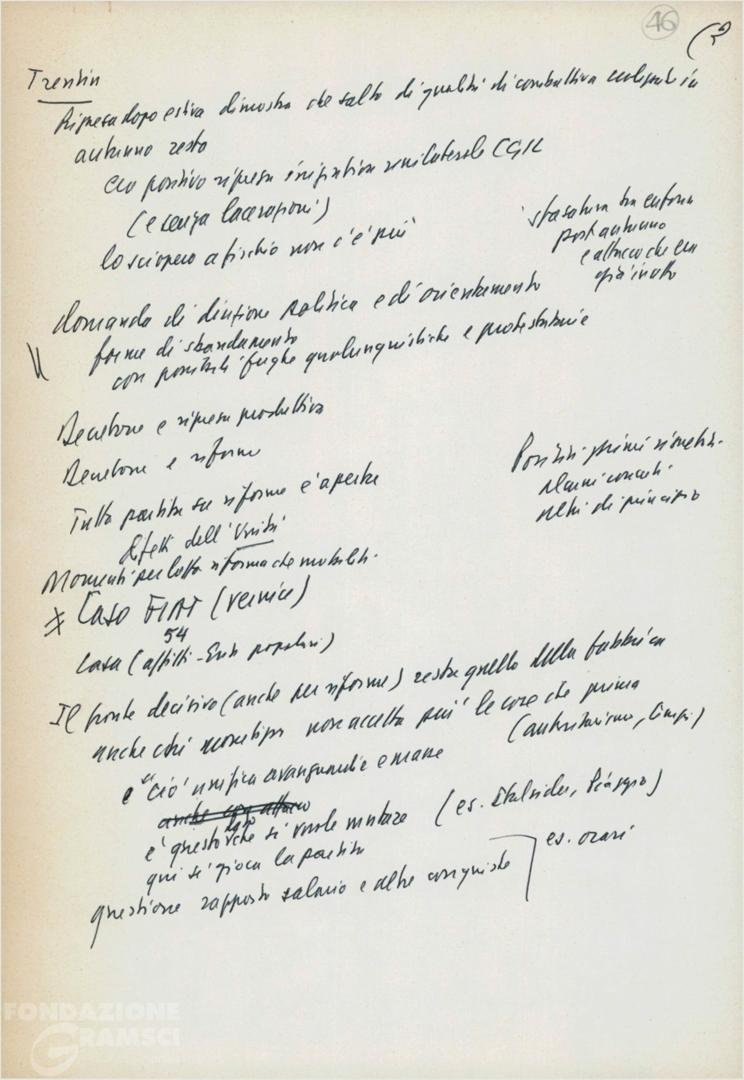 46
(2
Trentin
Ripresa dopo estiva dimostra che salto di qualità di combattiva in
autunno resto
ciò positivo ripresa unilaterale CGIL
(e senza lacerazioni)
lo sciopero a fischio non c'è più
sfasatura tra euforia
post autunno
e attacco che era
già in atto
domanda di direzione politica e di orientamento
forme di sbandamento
con possibili fughe qualunquistiche e protestatarie
Decretone e ripresa produttiva
Decretone e riforme
Tutta partita su riforme è aperta
Positivi primi
alcuni concreti
altri di principio
Difetti dell'Unità
Momenti per lotta riforma che mobiliti.
Caso FIAT (vernice)
54
Casa (affitti - Enti popolari)
Il fronte decisivo (anche per riforme) resta quello della fabbrica
anche chi non accetta più le cose che prima
(autoritarismo, )
e "ciò" unifica avanguardie e masse
anche con attacco
è questo che si vuole (es. Italsider, Piaggio)
qui si gioca la partita
questione rapporto salario e altre conquiste
es. orari
FONDAZIONE
GRAMSCI